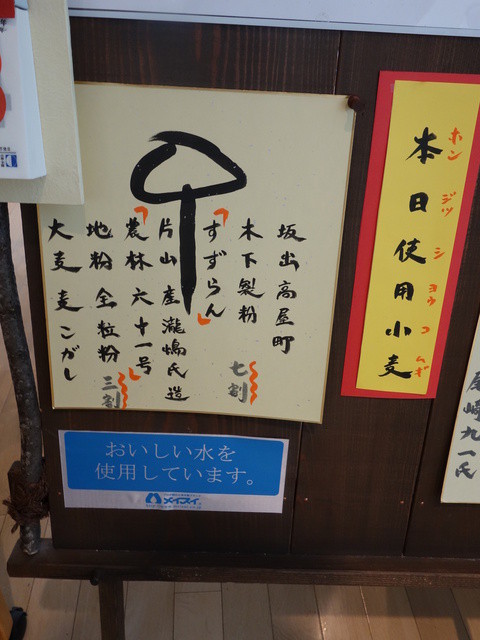 本日使用小麦
ホンジツシヨウコムギ
坂出高屋町
木下製粉
「すずらん」
七割
片山産瀧嶋氏造
「農林六十一号」
地粉全粒粉
三割
大麦麦こがし
尾崎九一氏
おいしい水を
使用しています。
メイスイ